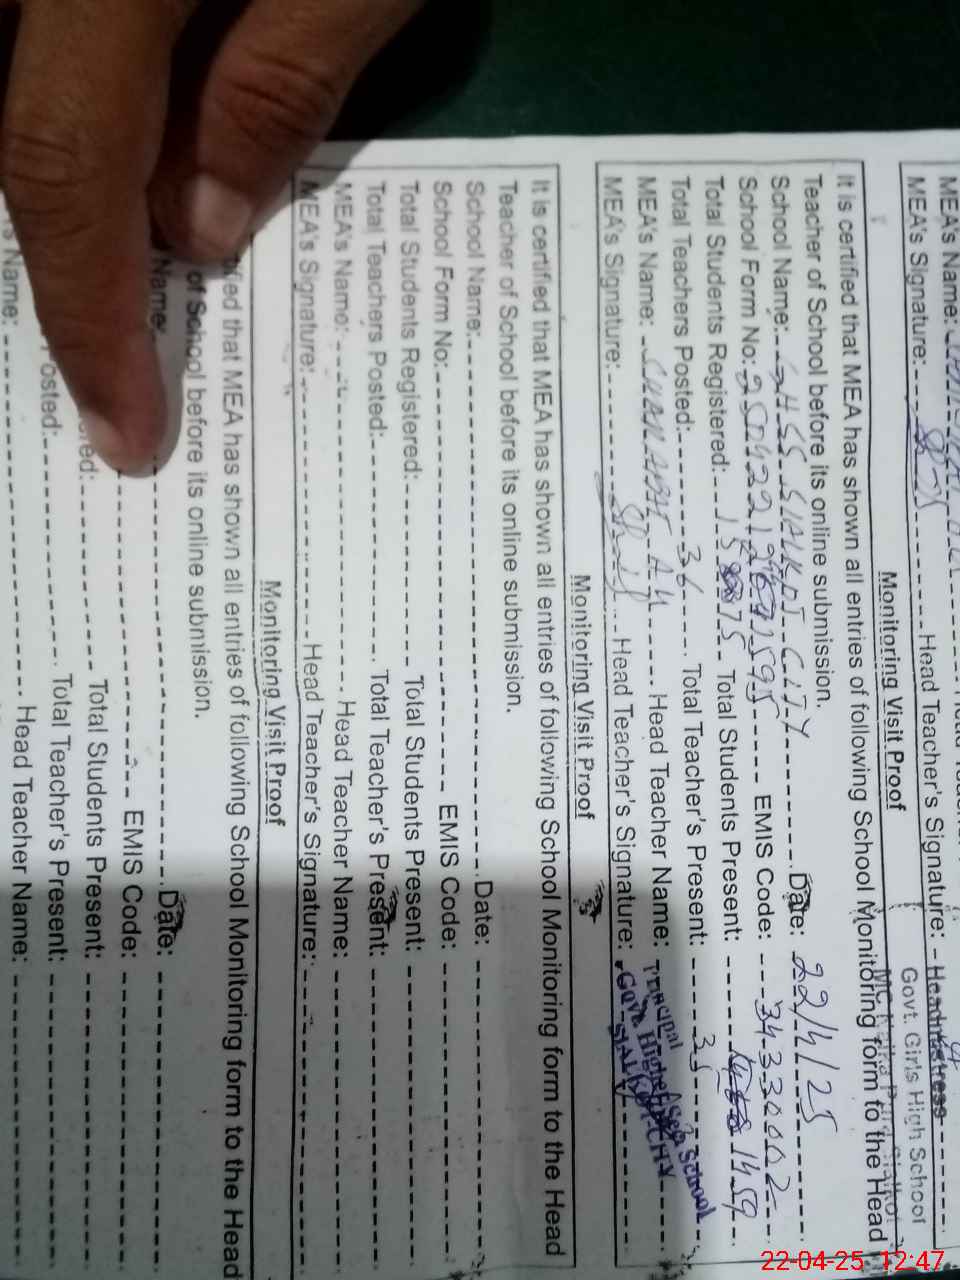 MEA's Name:
MEA's Signature: Head Teacher's Signature: Headmistress
Govt. Girls High School
Monitoring Visit Proof
It is certified that MEA has shown all entries of following School Monitoring form to the Head
Teacher of School before its online submission.
School Name: GHSS SIALKOT CITY Date: 22/4/25
School Form No: EMIS Code: 34330002
Total Students Registered: Total Students Present: 1459
Total Teachers Posted: 36 Total Teacher's Present: 35
MEA's Name: Head Teacher Name: Principal
MEA's Signature: Head Teacher's Signature: Govt. Higher Sec School
SIALKOT CITY
Monitoring Visit Proof
It is certified that MEA has shown all entries of following School Monitoring form to the Head
Teacher of School before its online submission.
School Name: Date:
School Form No: EMIS Code:
Total Students Registered: Total Students Present:
Total Teachers Posted: Total Teacher's Present:
MEA's Name: Head Teacher Name:
MEA's Signature: Head Teacher's Signature:
Monitoring Visit Proof
that MEA has shown all entries of following School Monitoring form to the Head
of School before its online submission.
Name: Date:
EMIS Code:
Total Students Present:
Posted: Total Teacher's Present:
Name: Head Teacher Name:
22-04-25 12:47